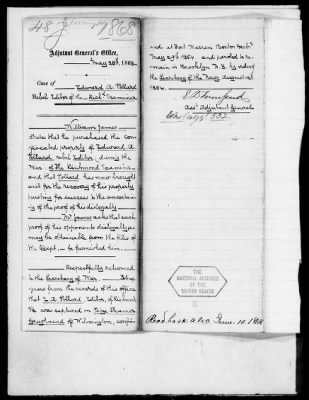 48 J 1868
Adjutant General's Office,
May 28th, 1868.
Case of Edward A. Pollard
Rebel Editor of the Richd Examiner
William James
States that he purchased the con-
fiscated property of Edward A.
Pollard rebel Editor, during the
War, of the Richmond Examiner
and that Pollard has now brought
suit for the recovery of his property
resting for success in the uncertain-
ty of the proof of his disloyalty.
Mr James asks that such
proof of his opponents disloyalty as
may be obtainable from the files of
the Dept. be furnished him.
Respectfully returned
to the Secretary of War. It ap-
pears from the records of this office
that E. A. Pollard, Editor, of Richmond
Va was captured on
Greyhound off Wilmington, confin-
ed at Fort Warren Boston Harbr
May 29th 1864. and paroled to re-
main in Brooklyn N.Y. by order of
the Secretary of the Navy August 12th
1864.
E D Townsend
Asst Adjutant General
THE
NATIONAL ARCHIVES
OF THE
UNITED STATES
Recd back A.G.O. June 10. 1868